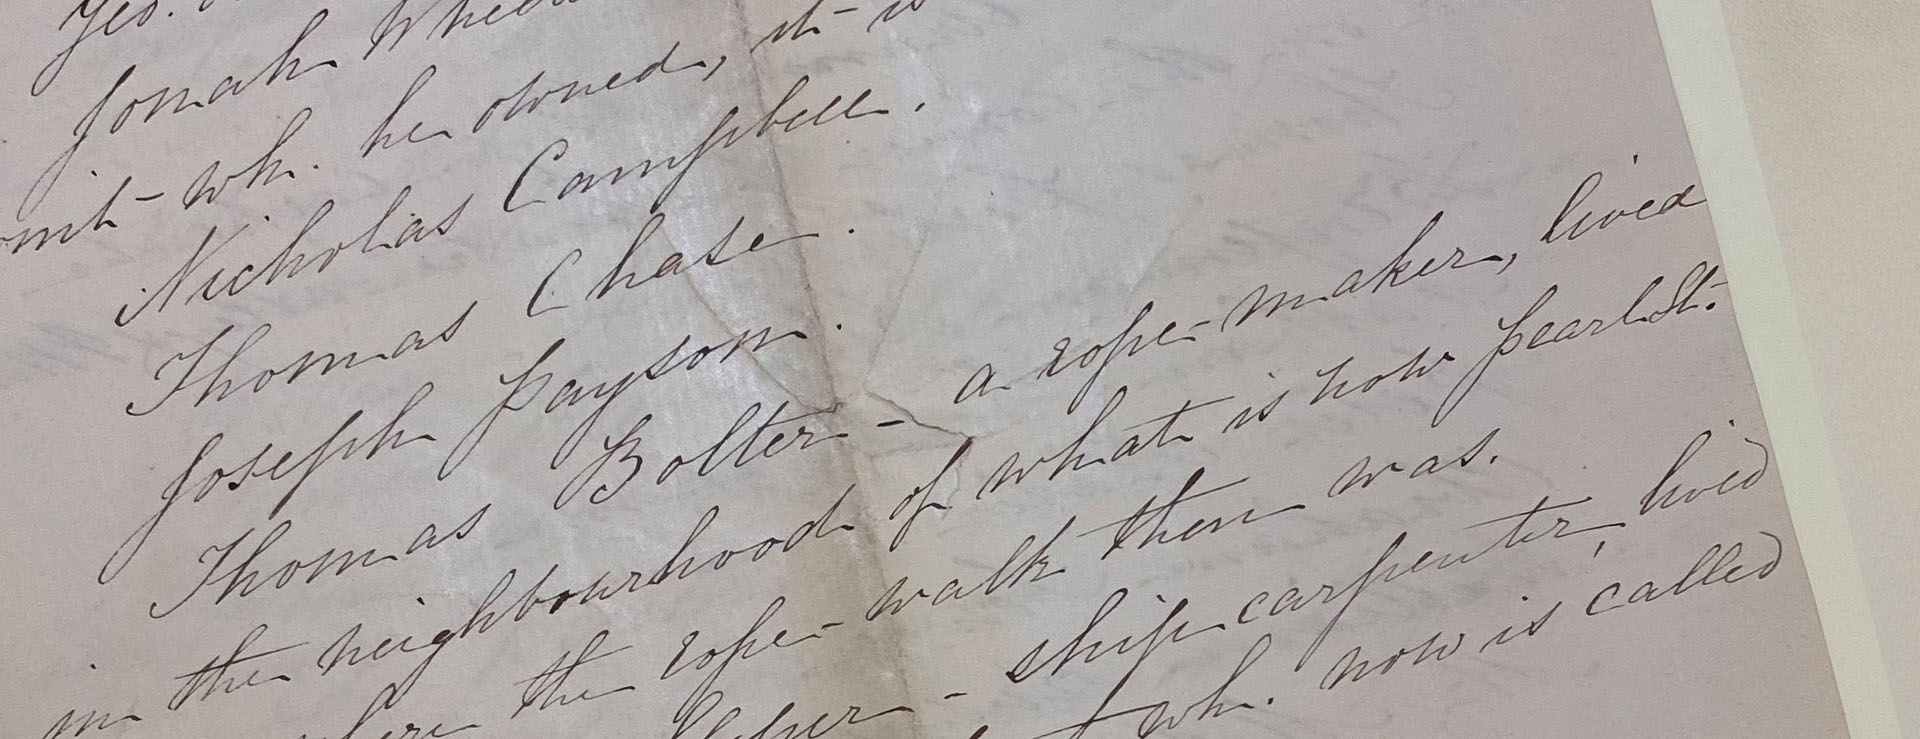 Geo.
Jonah
wh. he owned, it is
Nicholas Campbell.
Thomas Chase.
Joseph Payson.
Thomas Bolter - a rope-maker, lived
in the neighbourhood of what is now Pearl St.
where the rope-walk then was.
- ship carpenter, lived
wh. now is called